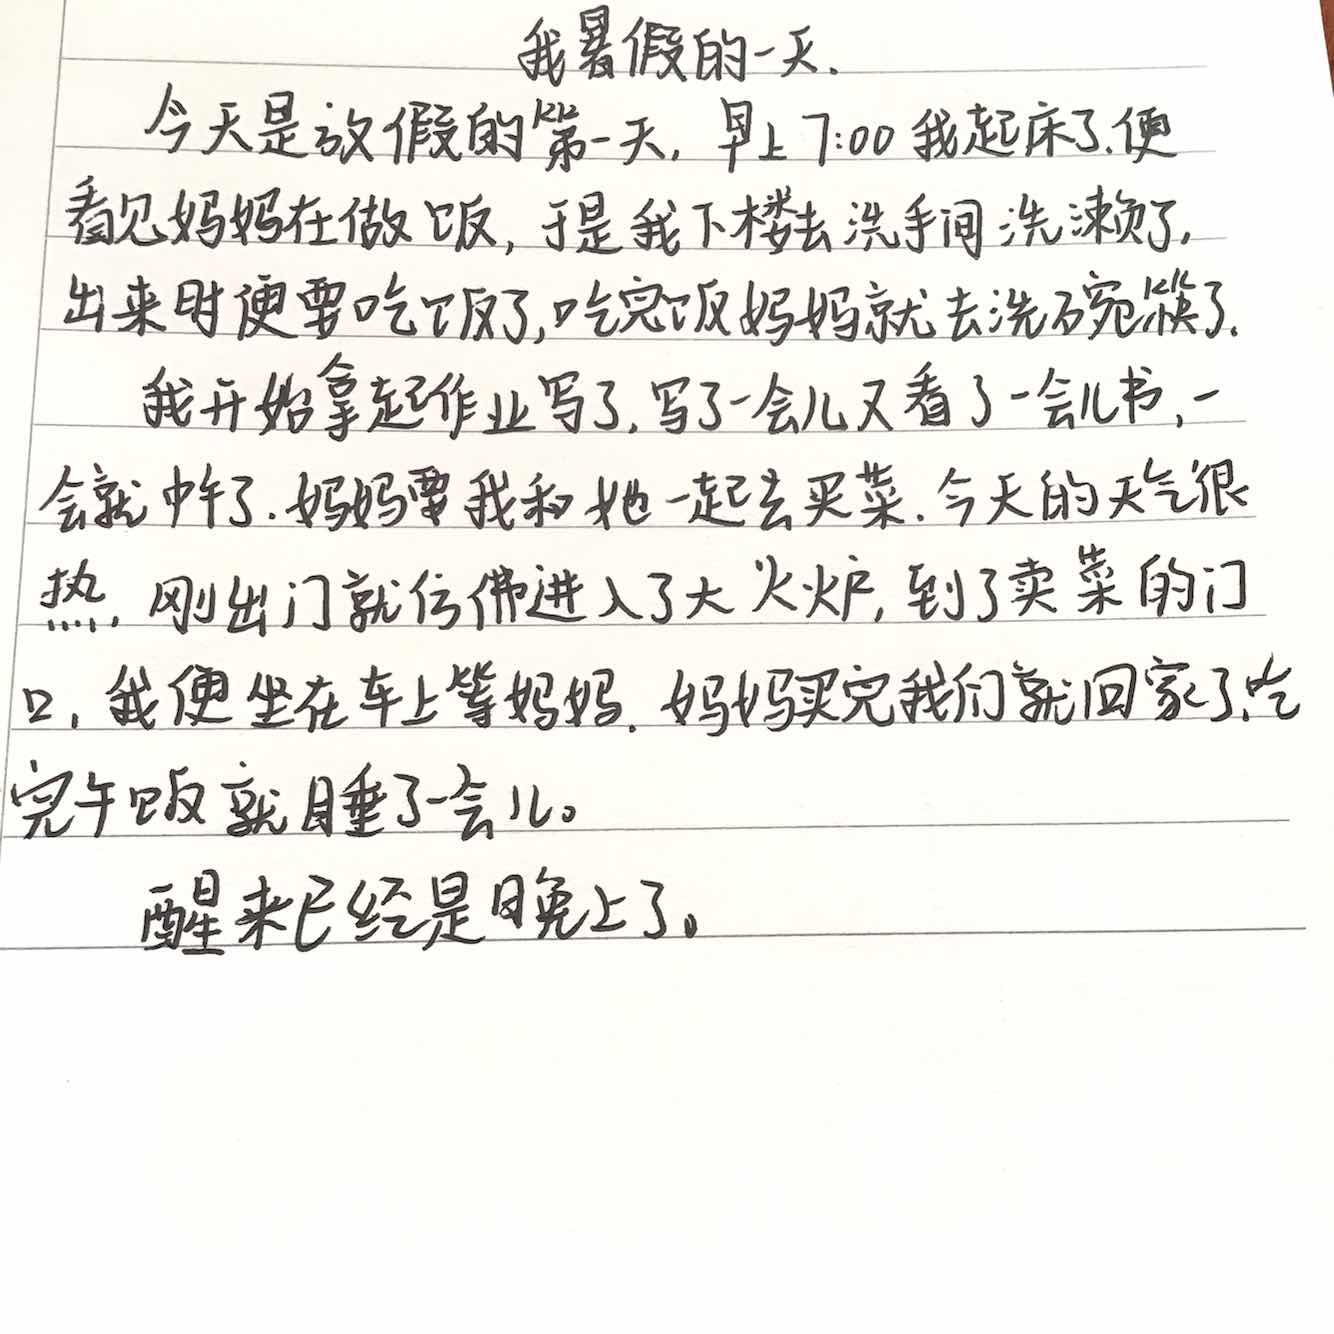 我暑假的一天.
今天是放假的第一天,早上7:00我起床了.便
看见妈妈在做饭,于是我下楼去洗手间洗漱了,
出来时便要吃饭了,吃完饭妈妈就去洗碗筷了.
我开始拿起作业写了,写了一会儿又看了一会儿书,一
会就中午了.妈妈要我和她一起去买菜.今天的天气很
热,刚出门就仿佛进入了大火炉,到了卖菜的门
口,我便坐在车上等妈妈.妈妈买完我们就回家了.吃
完午饭就睡了一会儿。
醒来已经是晚上了。